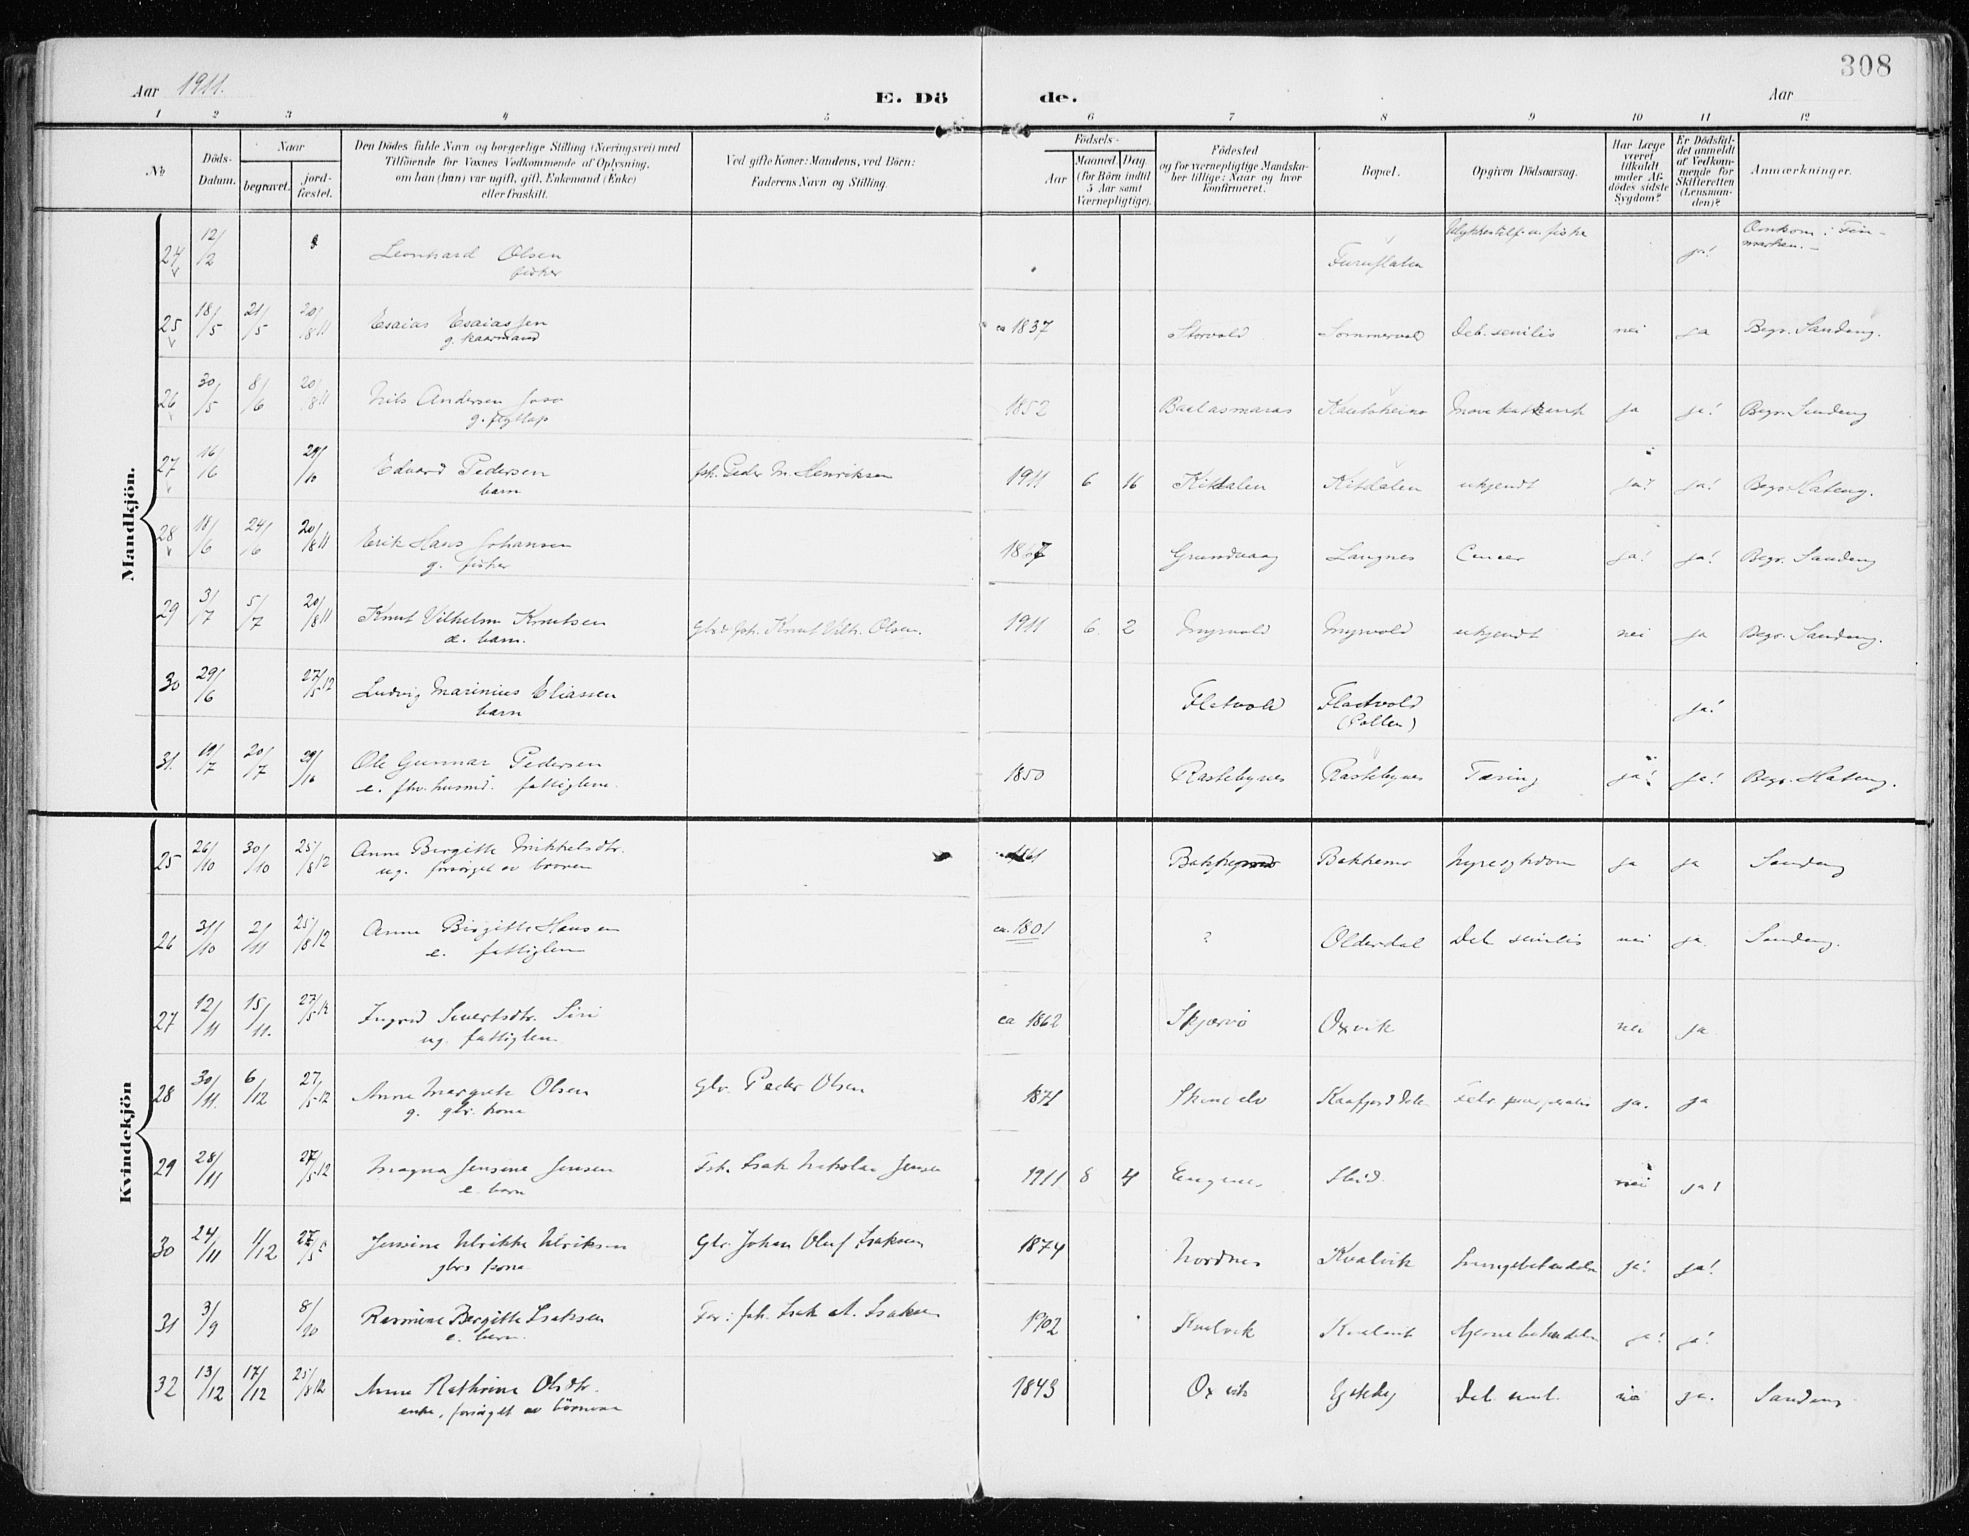 308
Aar 1911.
E. Dö de.
Aar
1 2 3 4 5 6 7 8 9 10 11 12
No
Döds-
Datum.
Naar
begravet.
jord-
fæstet.
Den Dödes fulde Navn og borgerlige Stilling (Næringsvei) med
Tilföiende for Voxnes Vedkommende af Oplysning,
om han (hun) var ugift, gift, Enkemand (Enke)
eller fraskilt.
Ved gifte Koner: Mandens, ved Börn:
Faderens Navn og Stilling.
Födsels-
Aar
Maaned. Dag.
(for Börn indtil
5 Aar samt
Værnepligtige).
Födested
og for værnepligtige Mandska-
ber tillige: Naar og hvor
konfirmeret.
Bopæl.
Opgiven Dödsaarsag.
Har Læge
været
tilkaldt
under Af-
dödes sidste
Sygdom?
Er Dödsfal-
det anmeldt
af Vedkom-
mende for
Skifteretten
(Lensman-
den)?
Anmærkninger.
Mandkjön.
24 12/2 Leonhard Olsen Ulykkestilf. u. fiske ja! Omkom i Fin-
fisker marken.
25 18/5 21/5 20/8 11 Esaias Esaiassen ca 1837 Storvold Sommervold Deb. senilis nei ja Begr. Sandeng.
g. kaarmand
26 30/5 8/6 20/8 11 Nils Andersen 1852 Kautokeino ja ja! Begr. Sandeng
g. flytlap
27 16/6 29/10 Edvard Pedersen fsk. Peder M. Henriksen 1911 6 16 Kitdalen Kitdalen ukjendt ja? ja! Begr. Hateng.
barn
28 18/6 24/6 20/8 11 Erik Hans Johansen 1867 Grundvaag Langnes Cancer ja! ja! Begr. Sandeng
g. fisker
29 3/7 5/7 20/8 11 Knut Vilhelm Knutsen fsk. Knut Vilh. Olsen. 1911 6 2 Myrvold Myrvold ukjendt nei ja Begr. Sandeng.
e. barn.
30 29/6 27/5 12 Ludvig Marinius Eliassen Flatvold Flatvold ja!
barn (Pollen)
31. 19/7 20/7 29/10 Ole Gunnar Pedersen 1850 Rastebynes Rastebynes Tæring ja! ja! Begr. Hateng.
e. fhv. husmd. fattiglem.
Kvindekjön
25 26/10 30/10 25/8 12 Anne Birgitte Mikkelsdtr. 1861 Bakkemo nyresykdom ja ja Sandeng
ug. forsörget av broren
26 31/10 2/11 25/8 12 Anne Birgitte Hansen ca. 1801 ? Olderdal Deb. senilis nei ja. Sandeng.
e. fattiglem
27 12/11 15/11. 27/5 12 Ingrid Sivertsdtr. Siri ca 1862 Skjærvö Oxvik nei ja
ug. fattiglem
28 30/11. 6/12 27/5 12 Anne Margrete Olsen Gbr. Peder Olsen 1871 Skibselv Kaafjorddalen Febr. puerperalis ja. ja
g. gbr. kone
29 28/11 27/5 12 Magna Jensine Jensen Fsk. Isak Nikolai Jensen 1911 8 4 Engnes nei ja!
e. barn
30 24/11 1/12 27/5 Jensine Ulrikke Ulriksen Gbr. Johan Oluf Isaksen 1874 Nordnes Kvalvik Lungebetændelse ja! ja!
gbrs kone
31 3/9 8/10 Rasmine Bergitte Isaksen Far: fsk. Isak M. Isaksen 1902 Kvalvik Kvalvik hjernebetændelse ja! ja!
e. barn.
32 13/12 17/12 25/8 12 Anne Kathrine Olsdtr. 1843 Oxvik Deb. senil. nei ja. Sandeng.
enke, forsörget av börnene